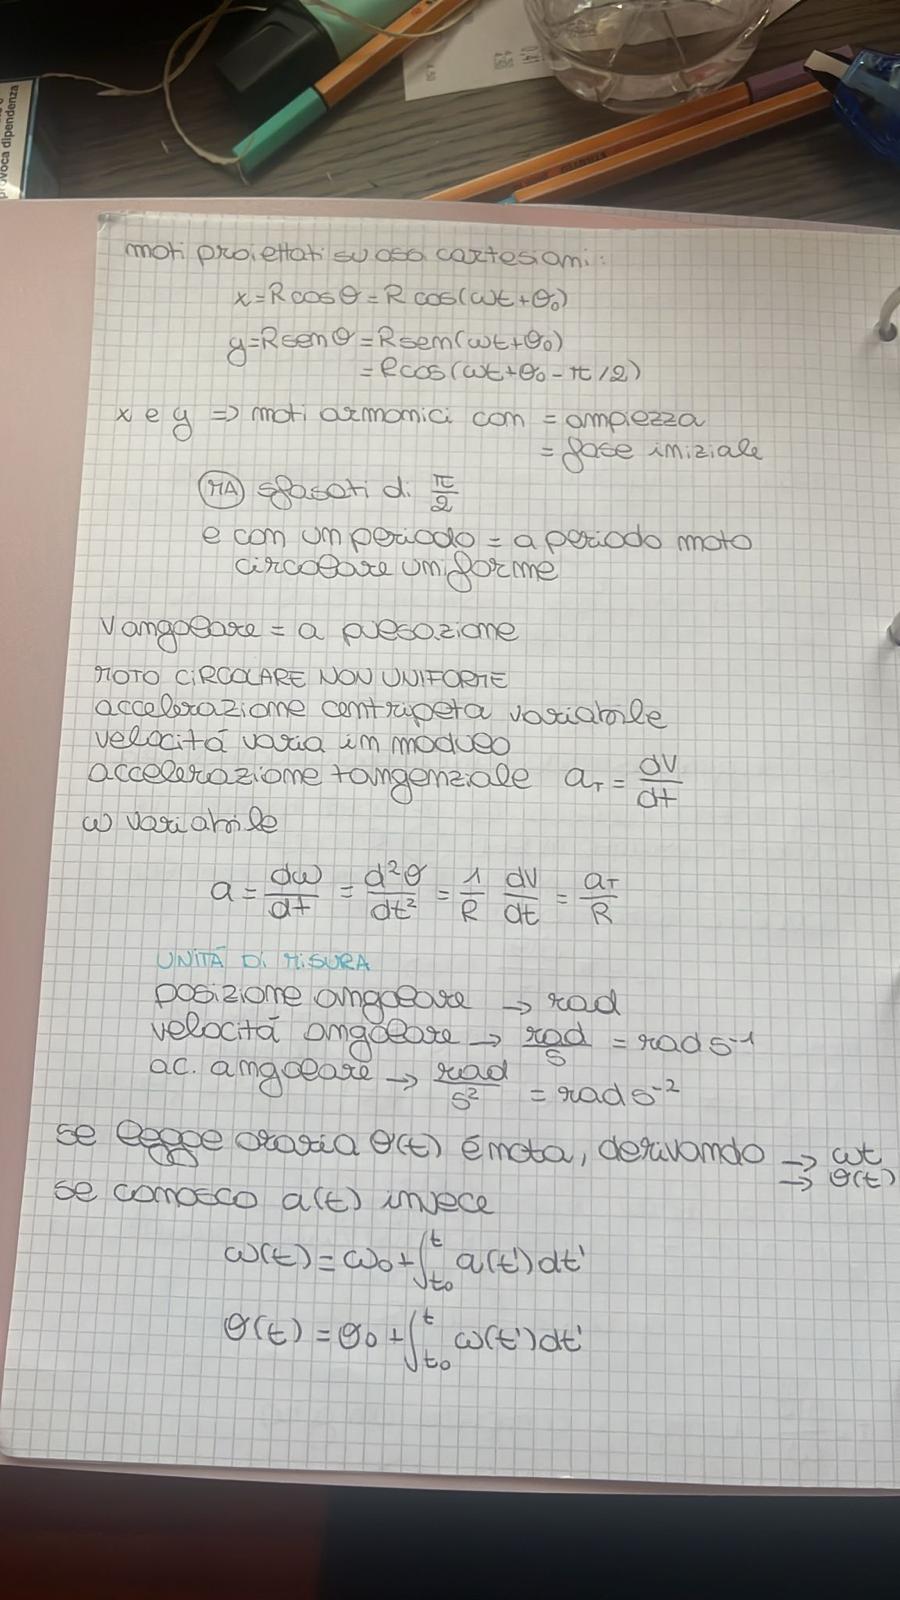 provoca dipendenza
moti proiettati su assi cartesiani:
x=Rcosθ=Rcos(ωt+θ₀)
y=Rsenθ=Rsen(ωt+θ₀)
=Rcos(ωt+θ₀-π/2)
x e y => moti armonici con = ampiezza
= fase iniziale
MA sfasati di π/2
e con un periodo = a periodo moto
circolare uniforme
v angolare = a pulsazione
MOTO CIRCOLARE NON UNIFORME
accelerazione centripeta variabile
velocitá varia in modulo
accelerazione tangenziale a_T = dV/dt
ω variabile
a = dω/dt = d²θ/dt² = 1/R dV/dt = a_T/R
UNITÁ DI MISURA
posizione angolare → rad
velocitá angolare → rad/s = rad s⁻¹
ac. angolare → rad/s² = rad s⁻²
se legge oraria θ(t) é nota, derivando → ωt
→ θ(t)
se conosco a(t) invece
ω(t) = ω₀ + ∫_{t₀}^{t} a(t')dt'
θ(t) = θ₀ + ∫_{t₀}^{t} ω(t')dt'